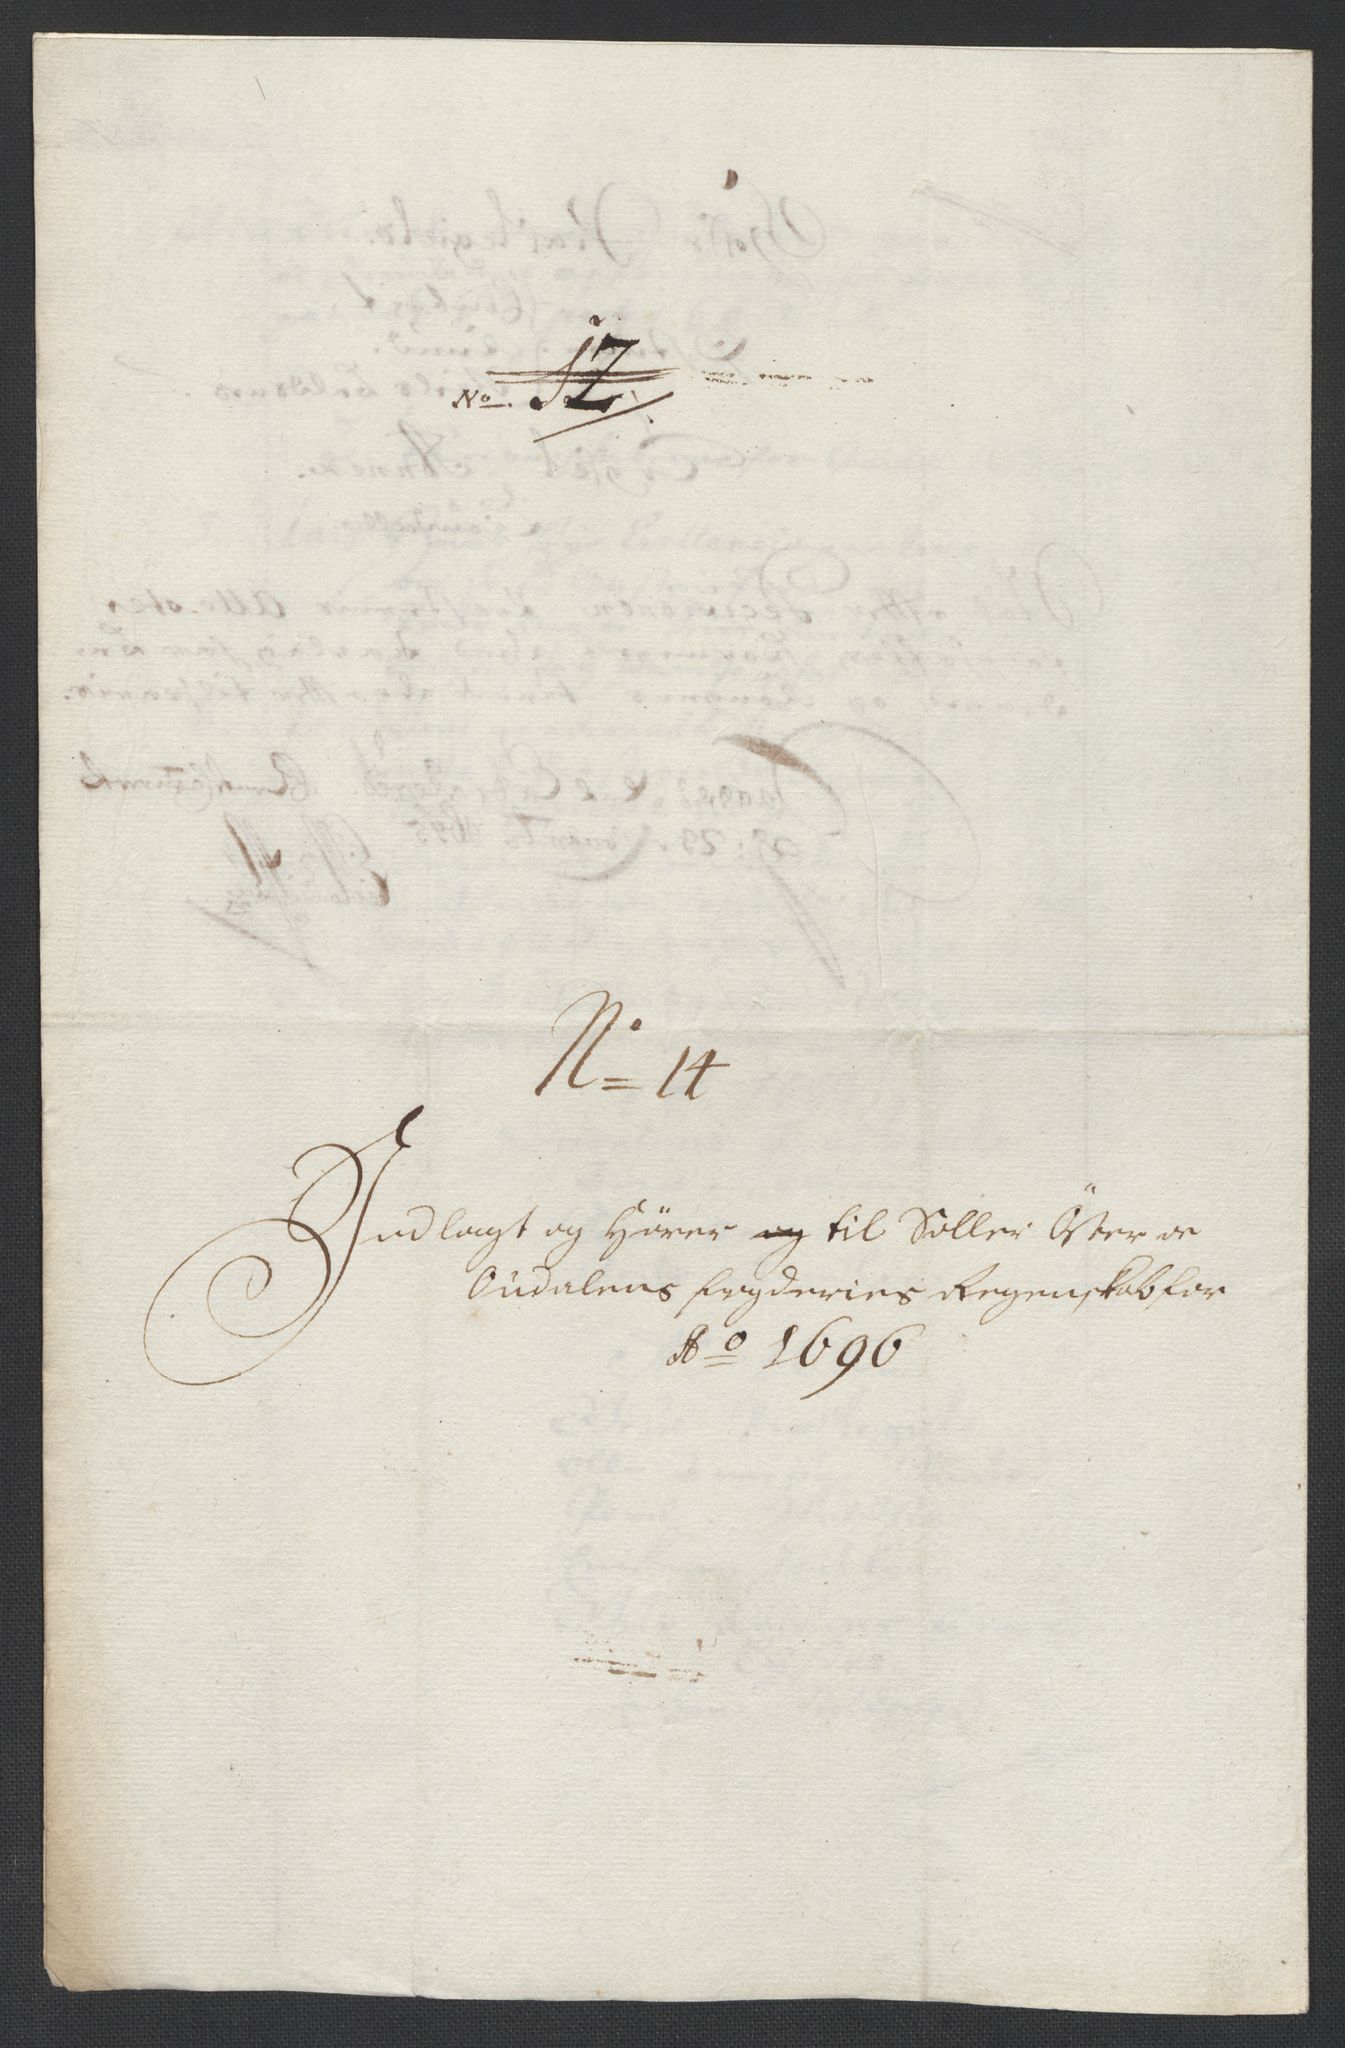 No. 12
No 14
Indlagt og Hörer og til Soller Öster oc
Oudalens fogderies Regenskab for
Ao 1696